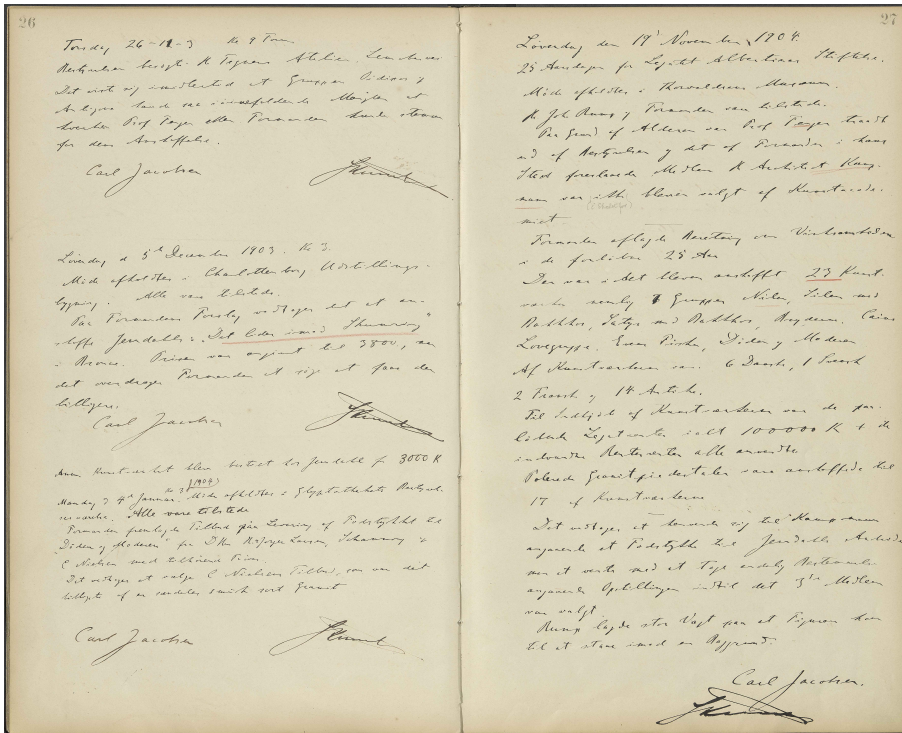 26
Torsdag 26-11-3 Kl 9 Form
Bestyrelsen besøgte K Tegners Atelier.
Det viste sig imidlertid at Gruppen Ødipus og
Antigone havde saa iøjnefaldende Mangler at
hverken Prof Teger eller Formanden kunde stemme
for dens Anskaffelse.
Carl Jacobsen
Løverdag d 5te December 1903. Kl 3.
Møde afholdtes i Charlottenborg Udstillings-
bygning. Alle vare tilstede.
Paa Formandens Forslag vedtoges det at an-
skaffe Jerndahls: "Det lider imod
i Bronce. Prisen var angivet til 3800,
det overdroges Formanden at søge at faae den
billigere.
Carl Jacobsen
Kunstværket blev bestilt hos Jerndahl for 3000 K
Mandag d 4de Januar 1904 Kl 3 Møde afholdtes i Glyptothekets Bestyrel-
sesværelse. Alle vare tilstede
Formanden fremlagde Tilbud paa Levering af Fodstykket til
"Døden og Moderen" fra DHrr Larsen, Schannong og
C Nielsen med tilhørende Tegn.
Det vedtoges at vælge C Nielsens Tilbud, som var det
billigste af en særdeles smuk sort Granit
Carl Jacobsen
27
Løverdag den 19' November 1904.
25 Aarsdagen for Legatet Albertinas Stiftelse.
Møde afholdtes i Thorvaldsens Museum.
K Joh Rump og Formanden var tilstede.
Paa Grund af Alderen var Prof Teger traadt
ud af Bestyrelsen og det af Formanden i hans
Sted foreslaaede Medlem K Architekt Kamp-
mann var ikke bleven valgt af Kunstacade-
miet
Formanden aflagde Beretning om Virksomheden
i de forløbne 25 Aar
Der var i det bleven anskaffet 23 Kunst-
værker nemlig Grupper Nilen, Silen med
Bakkhos, Satyr med Bakkhos, Brydere, Cains
Løvegruppe, Døden og Moderen
Af Kunstværkerne var 6 Dansk, 1 Svensk
2 Fransk og 14 Antike.
Til Indkjøb af Kunstværkerne var de paa-
løbende Legatrenter ialt 100000 K + de
indvundne Renters Renter alle anvendte
Polerede Granitpiedestaler vare anskaffede til
17 af Kunstværkerne
Det vedtoges at henvende sig til Kampmann
angaaende et Fodstykke til Jerndahls
men at vente med at tage endelig Bestemmelse
angaaende Opstillingen indtil det 3die Medlem
var valgt.
Rump lagde stor Vægt paa at Figuren kom
til at staae imod en Baggrund.
Carl Jacobsen.